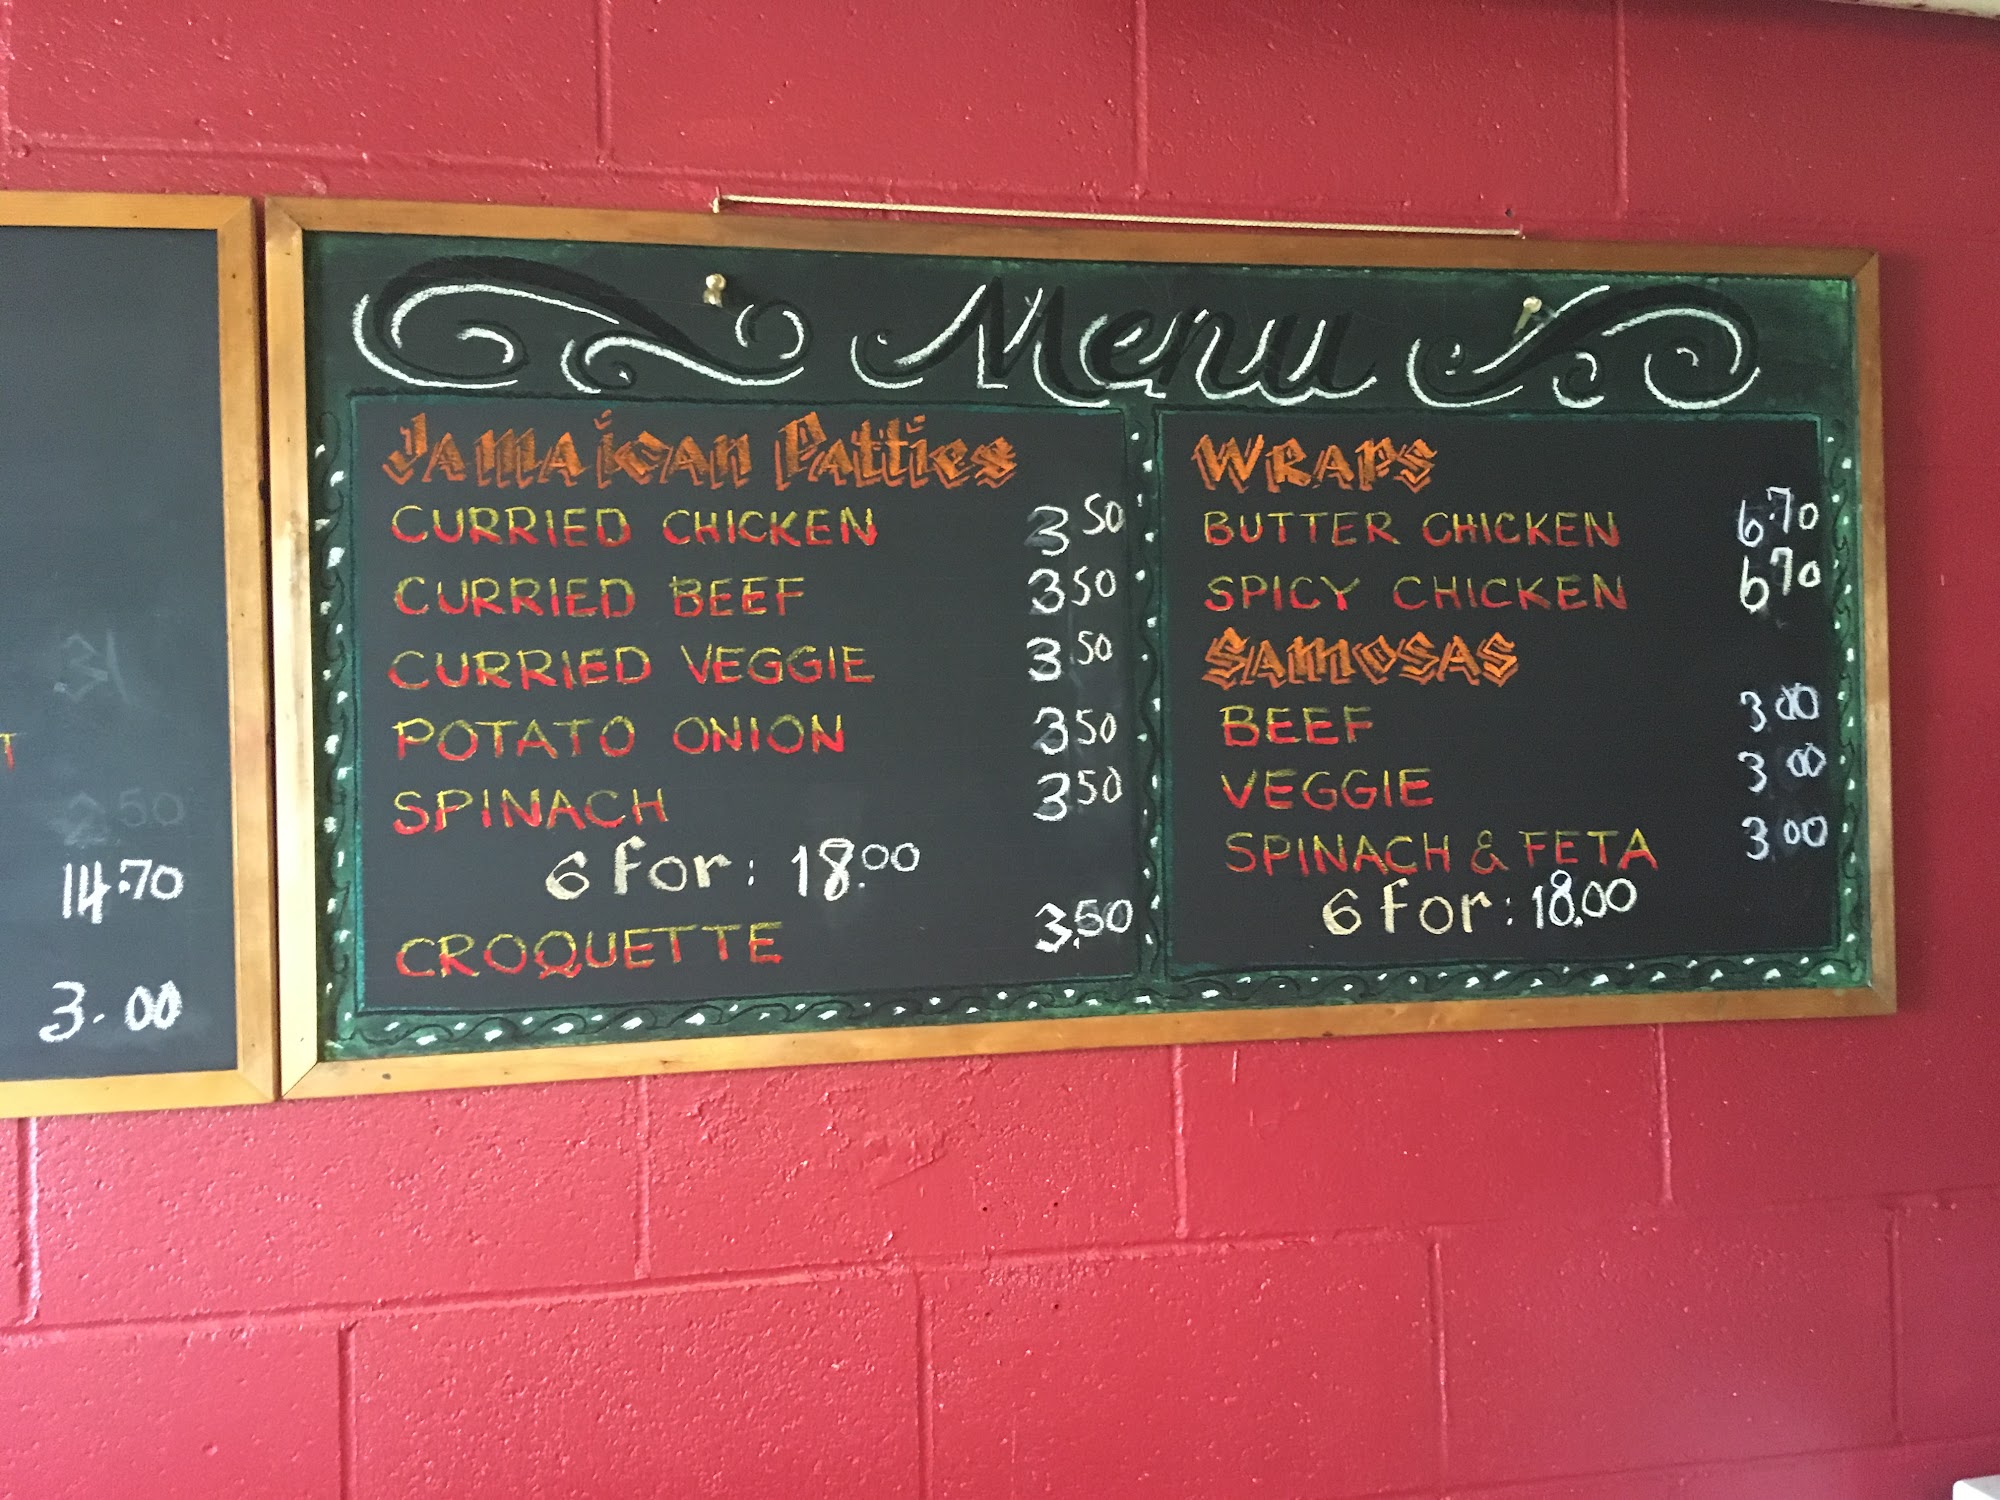 T
14.70
3.00
Menu
Jamaican Patties
CURRIED CHICKEN 3.50
CURRIED BEEF 3.50
CURRIED VEGGIE 3.50
POTATO ONION 3.50
SPINACH 3.50
6 for: 18.00
CROQUETTE 3.50
WRAPS
BUTTER CHICKEN 6.70
SPICY CHICKEN 6.70
SAMOSAS
BEEF 3.00
VEGGIE 3.00
SPINACH & FETA 3.00
6 for: 18.00